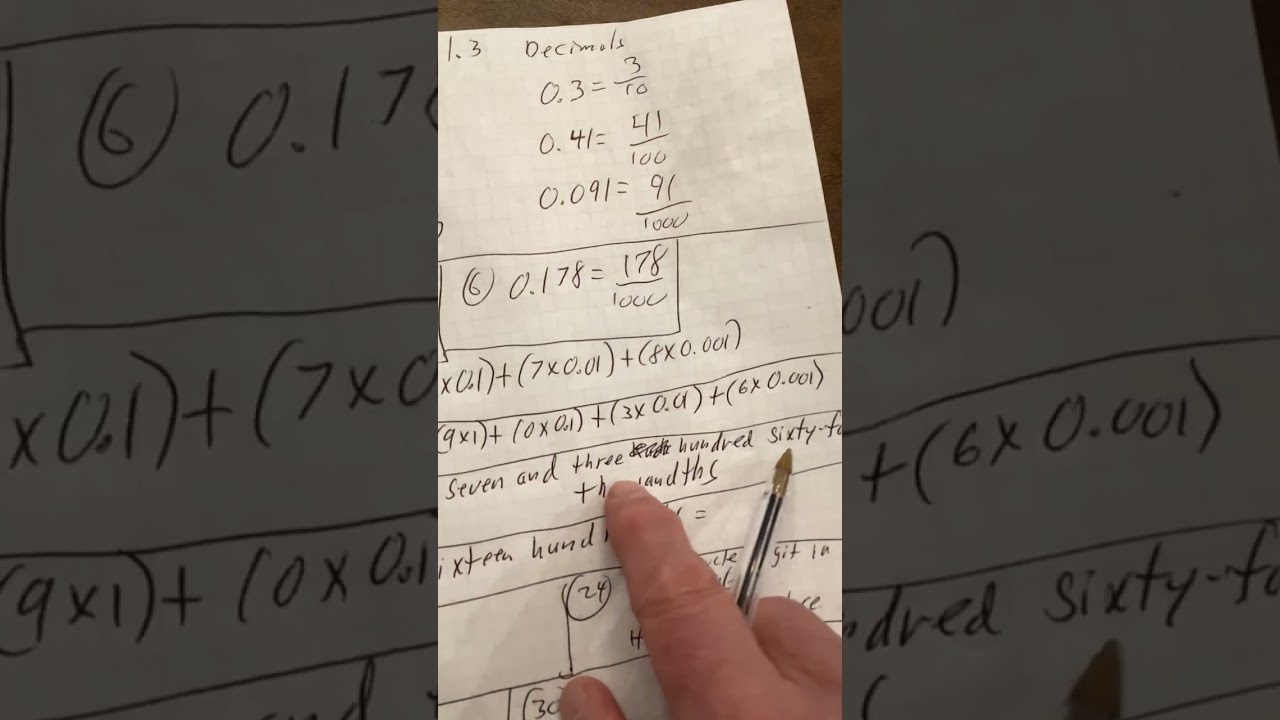 1.3 Decimals
0.3 = 3/10
0.41 = 41/100
0.091 = 91/1000
6 0.178 = 178/1000
x 0.1) + (7 x 0.01) + (8 x 0.001)
(9x1) + (0 x 0.1) + (3 x 0.01) + (6 x 0.001)
seven and three hundred sixty-fo
=
ixteen hund
git in
24
30